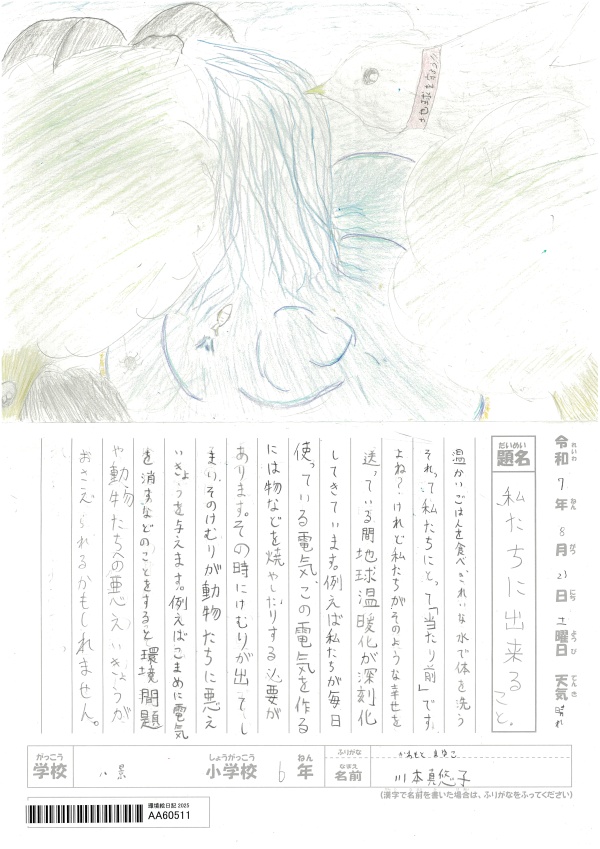 地球を守ろう!!
令和7年8月23日土曜日 天気 晴れ
れいわ ねん がつ にち ようび てんき
だいめい
題名
私たちに出来ること。
温かいごはんを食べ、きれいな水で体を洗う
それって私たちにとって「当たり前」です
よね?けれど私たちがそのような幸せを
送っている間地球温暖化が深刻化
してきています。例えば私たちが毎日
使っている電気。この電気を作る
には物などを焼やしたりする必要が
あります。その時にけむりが出てし
まい、そのけむりが動物たちに悪え
いきょうを与えます。例えばこまめに電気
を消すなどのことをすると環境問題
や動物たちへの悪えいきょうが
おさえられるかもしれません。
がっこう
学校
八景
しょうがっこう
小学校
6
ねん
年
ふりがな
かわもと まゆこ
なまえ
名前
川本真悠子
(漢字で名前を書いた場合は、ふりがなをふってください)
環境絵日記 2025
AA60511